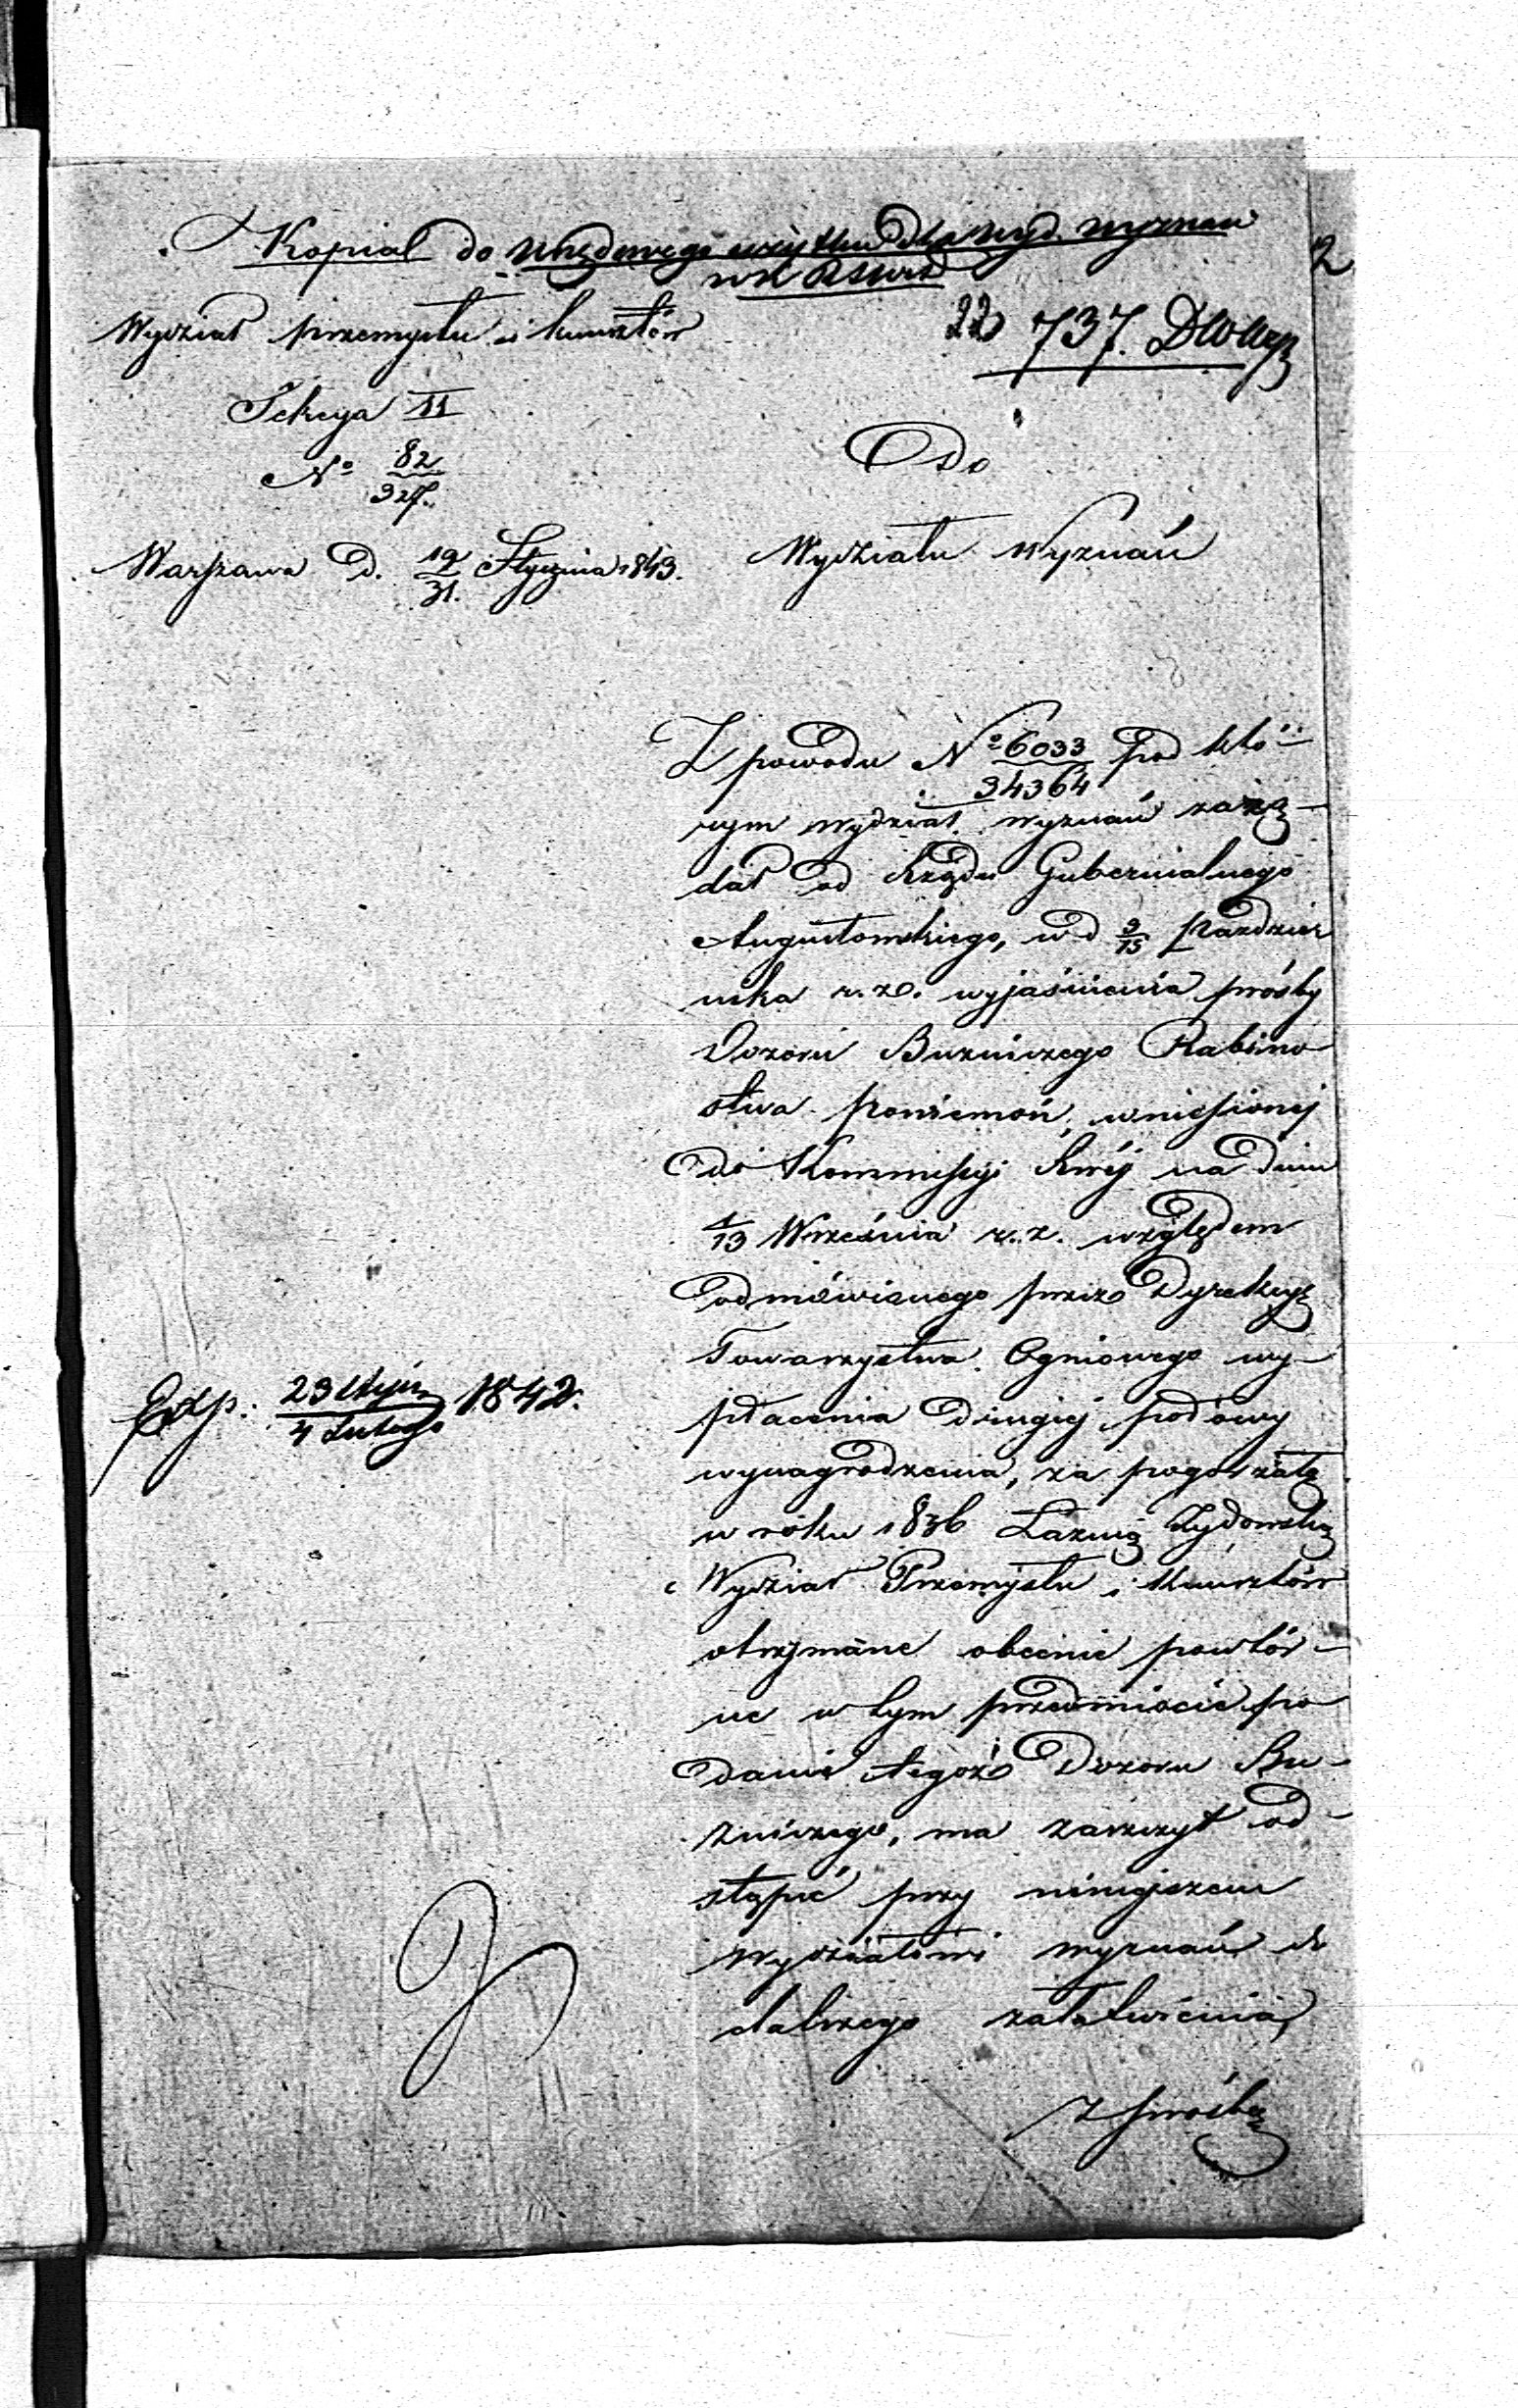 Kopiał do urzędowego użytku dla Wyd. wyznań
2
Wydział przemysłu i kunsztów
22 737.
Sekcya II
Nº 82/927.
Do
Warszawa D. 19/31. Stycznia 1843.
Wydziału Wyznań
Z powodu Nº 6033/34364 pod któ-
rym wydział wyznań zażą-
dał od Rządu Gubernialnego
Augustowskiego, w d 3/15 Paździer
nika r. z. wyjaśnienia prośby
Dozoru Bużniczego Rabino
stwa Poniemoń, wniesionej
do Kommissyi Rwéj na dniu
1/13 Września r. z. względem
odmówionego przez Dyrekcyę
Towarzystwa Ogniowego wy-
płacenia drugiej połowy
wynagrodzenia, za pogorzałą
w roku 1836 Łaźnię Żydowską
Wydział Przemysłu i Kunsztów
otrzymane obecnie powtór-
ne w tym przedmiocie po
danie tegoż Dozoru Bu-
żniczego, ma zaszczyt od-
stąpić przy niniejszem
wydziałowi wyznań do
dalszego załatwienia,
z prośbą
Exp. 23 Stycz/4 Lutego 1842.